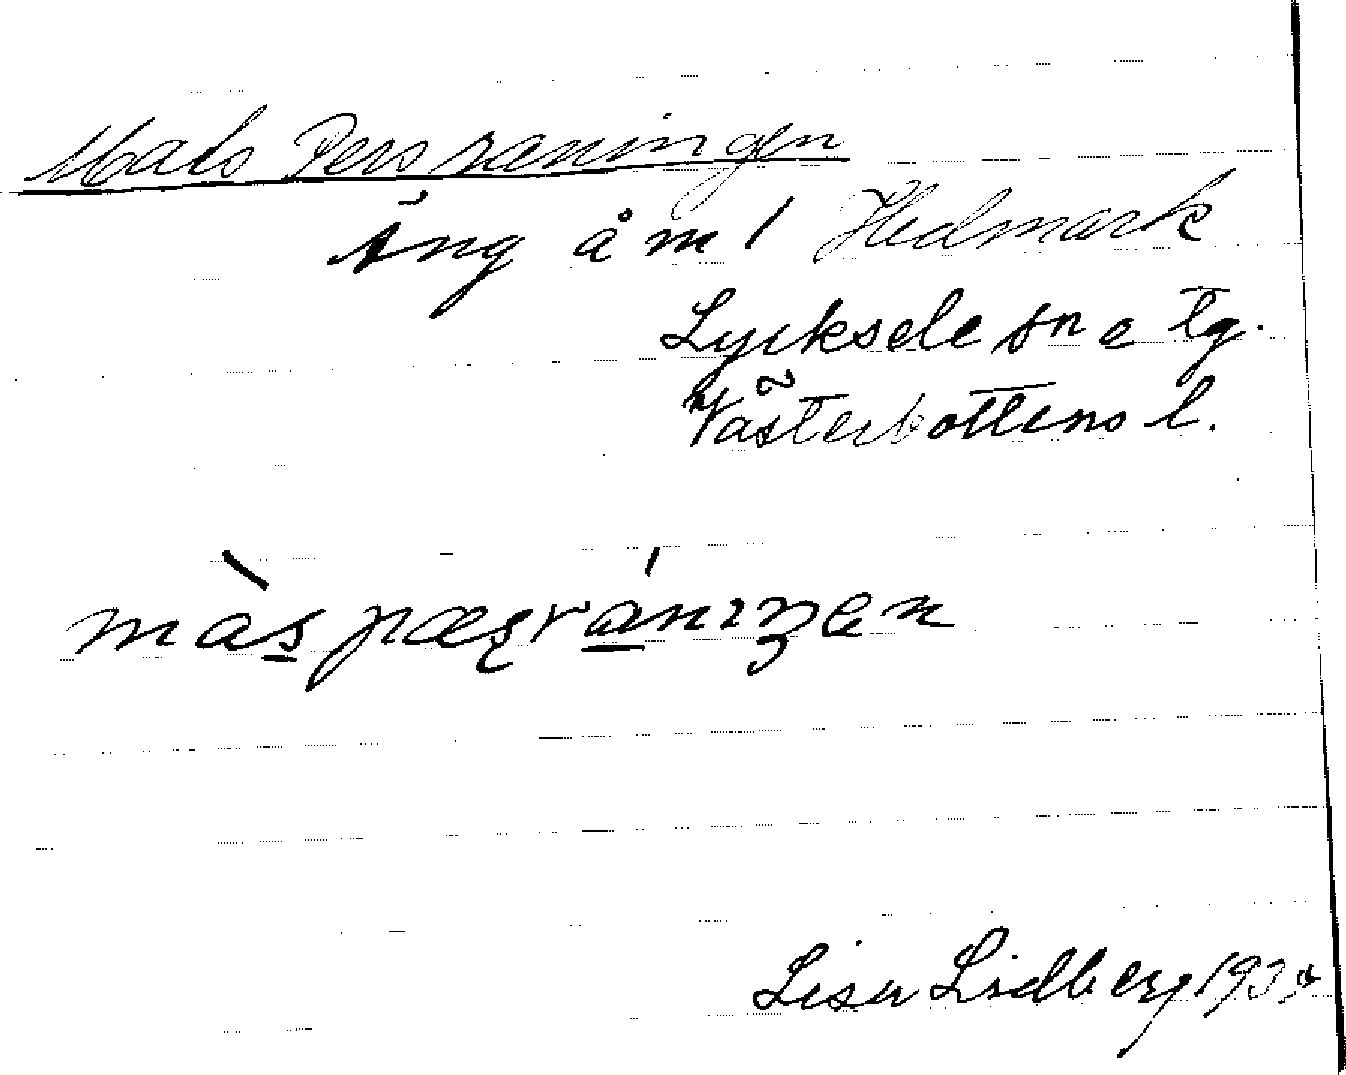 Mats Persraningen
Äng å m 1 Hedmark
Lycksele sn o tg.
Västerbottens l.
màspæsrániŋen
Lisa Lidberg 193